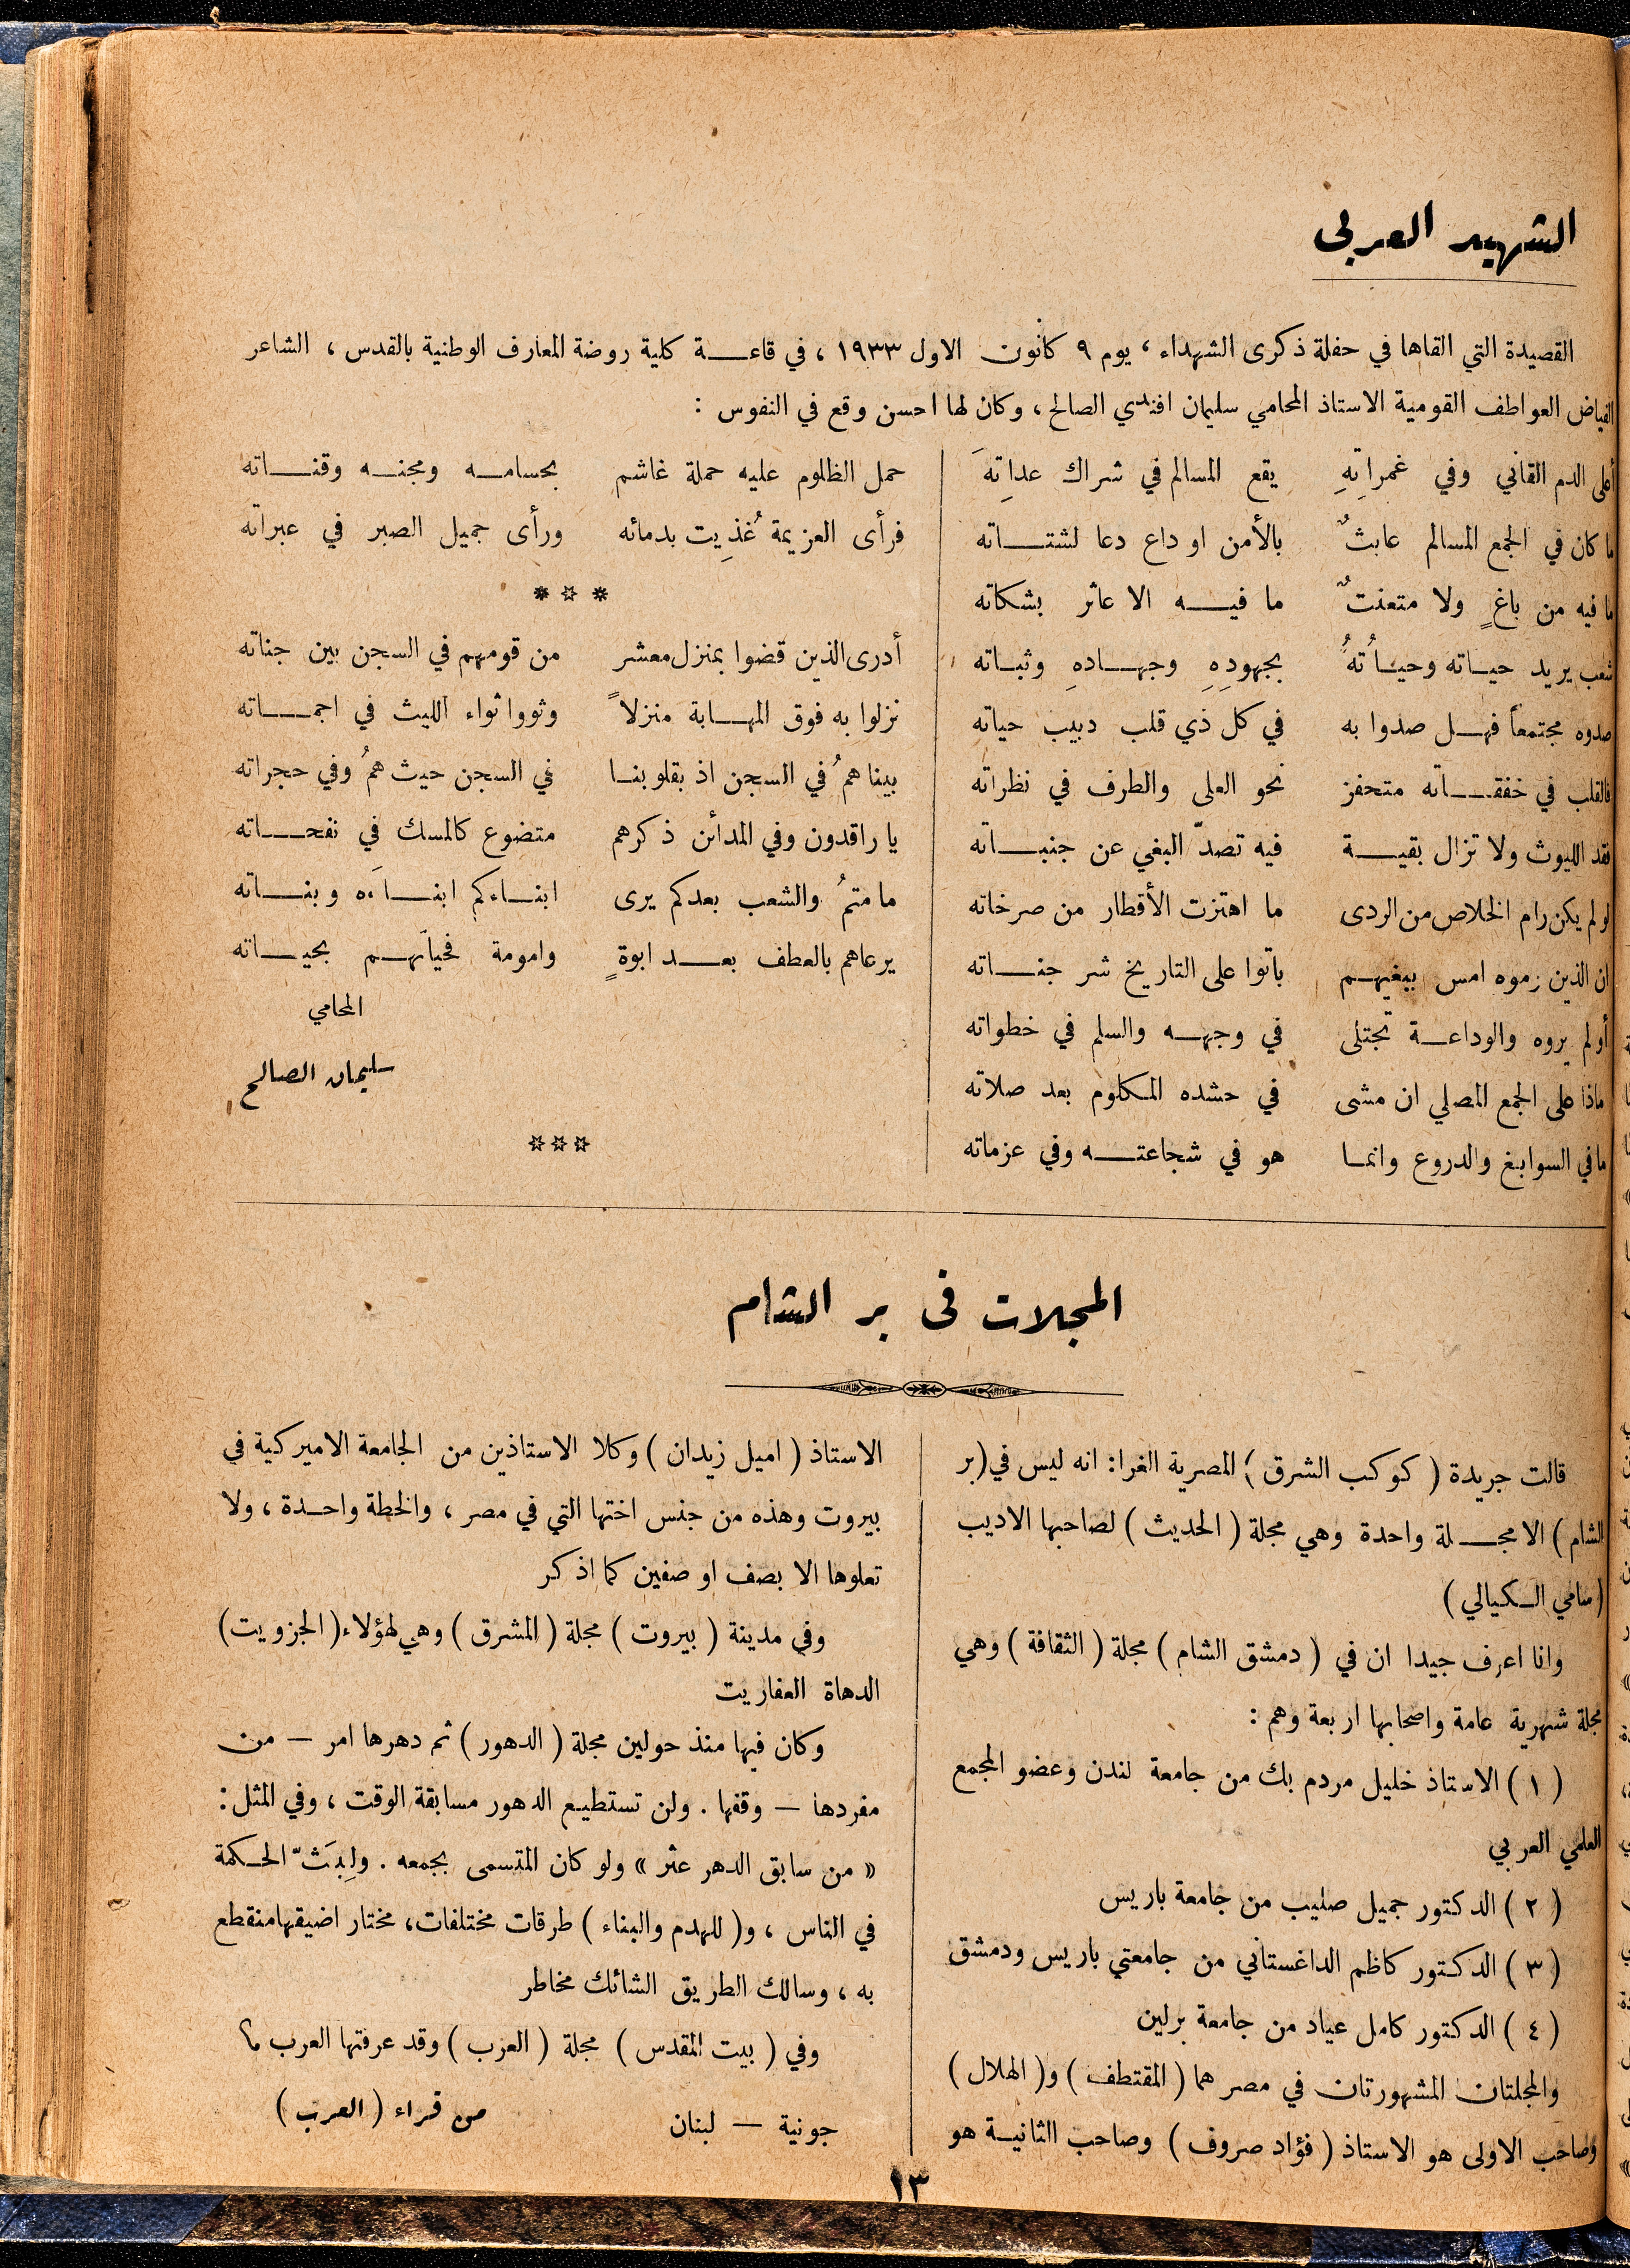 الشهيد العربي
القصيدة التي القاها في حفلة ذكرى الشهداء ، يوم ٩ كانون الاول ١٩٣٣ ، في قاعة كلية روضة المعارف الوطنية بالقدس ، الشاعر
الفياض العواطف القومية الاستاذ المحامي سليمان افندي الصالح ، وكان لها احسن وقع في النفوس :
أعلى الدم القاني وفي غمراتِهِ يقع المسالم في شراك عداتِهَ
ما كان في الجمع المسالم عابثٌ بالأمن او داع دعا لشتاته
ما فيه من باغٍ ولا متعنتٌ ما فيه الا عاثر بشكاته
شعب يريد حياته وحياُتهُ بجهودِهِ وجهادهِ وثباته
صدوه مجتمعاً فهل صدوا به في كل ذي قلب دبيب حياته
فالقلب في خفقاته متحفز نحو العلى والطرف في نظراته
فقد الليوث ولا تزال بقية فيه تصدّ البغي عن جنباته
لو لم يكن رام الخلاص من الردى ما اهتزت الأقطار من صرخاته
ان الذين رموه امس ببغيهم باتوا على التاريخ شر جناته
أولم يروه والوداعة تجتلى في وجهه والسلم في خطواته
ماذا على الجمع المصلي ان مشى في حشده المكلوم بعد صلاته
ما في السوابغ والدروع وانما هو في شجاعته وفي عزماته
حمل الظلوم عليه حملة غاشم بحسامه ومجنه وقناته
فرأى العزيمة ُغذِيت بدمائه ورأى جميل الصبر في عبراته
* ☆ *
أدرى الذين قضوا بمنزل معشر من قومهم في السجن بين جناته
نزلوا به فوق المهابة منزلاً وثووا ثواء الليث في اجماته
بينا همُ في السجن اذ بقلوبنا في السجن حيث همُ وفي حجراته
يا راقدون وفي المدائن ذكرهم متضوع كالمسك في نفحاته
ما متمُ والشعب بعدكم يرى ابناءكم ابناَءه وبناته
يرعاهم بالعطف بعد ابوةٍ وامومة فحياتهم بحياته
المحامي
سليمان الصالح
☆☆☆
المجلات في بر الشام
قالت جريدة ( كوكب الشرق ) المصرية الغرا : انه ليس في (بر
الشام ) الا مجلة واحدة وهي مجلة ( الحديث ) لصاحبها الاديب
( سامي الكيالي )
وانا اعرف جيدا ان في ( دمشق الشام ) مجلة ( الثقافة ) وهي
مجلة شهرية عامة واصحابها اربعة وهم :
( ١ ) الاستاذ خليل مردم بك من جامعة لندن وعضو المجمع
العلمي العربي
( ٢ ) الدكتور جميل صليب من جامعة باريس
( ٣ ) الدكتور كاظم الداغستاني من جامعتي باريس ودمشق
( ٤ ) الدكتور كامل عياد من جامعة برلين
والمجلتان المشهورتان في مصر هما ( المقتطف ) و( الهلال )
وصاحب الاولى هو الاستاذ ( فؤاد صروف ) وصاحب الثانية هو
الاستاذ ( اميل زيدان ) وكلا الاستاذين من الجامعة الاميركية في
بيروت وهذه من جنس اختها التي في مصر ، والخطة واحدة ، ولا
تعلوها الا بصف او صفين كما اذكر
وفي مدينة ( بيروت ) مجلة ( المشرق ) وهي لهؤلاء ( الجزويت )
الدهاة العفاريت
وكان فيها منذ حولين مجلة ( الدهور ) ثم دهرها امر — من
مفردها — وقفها . ولن تستطيع الدهور مسابقة الوقت ، وفي المثل :
« من سابق الدهر عثر » ولو كان المتسمى بجمعه . ولِبَثّ الحكمة
في الناس ، و( للهدم والبناء ) طرقات مختلفات ، مختار اضيقها منقطع
به ، وسالك الطريق الشائك مخاطر
وفي ( بيت المقدس ) مجلة ( العرب ) وقد عرفتها العرب م؟
جونية — لبنان من قراء ( العرب )
١٣